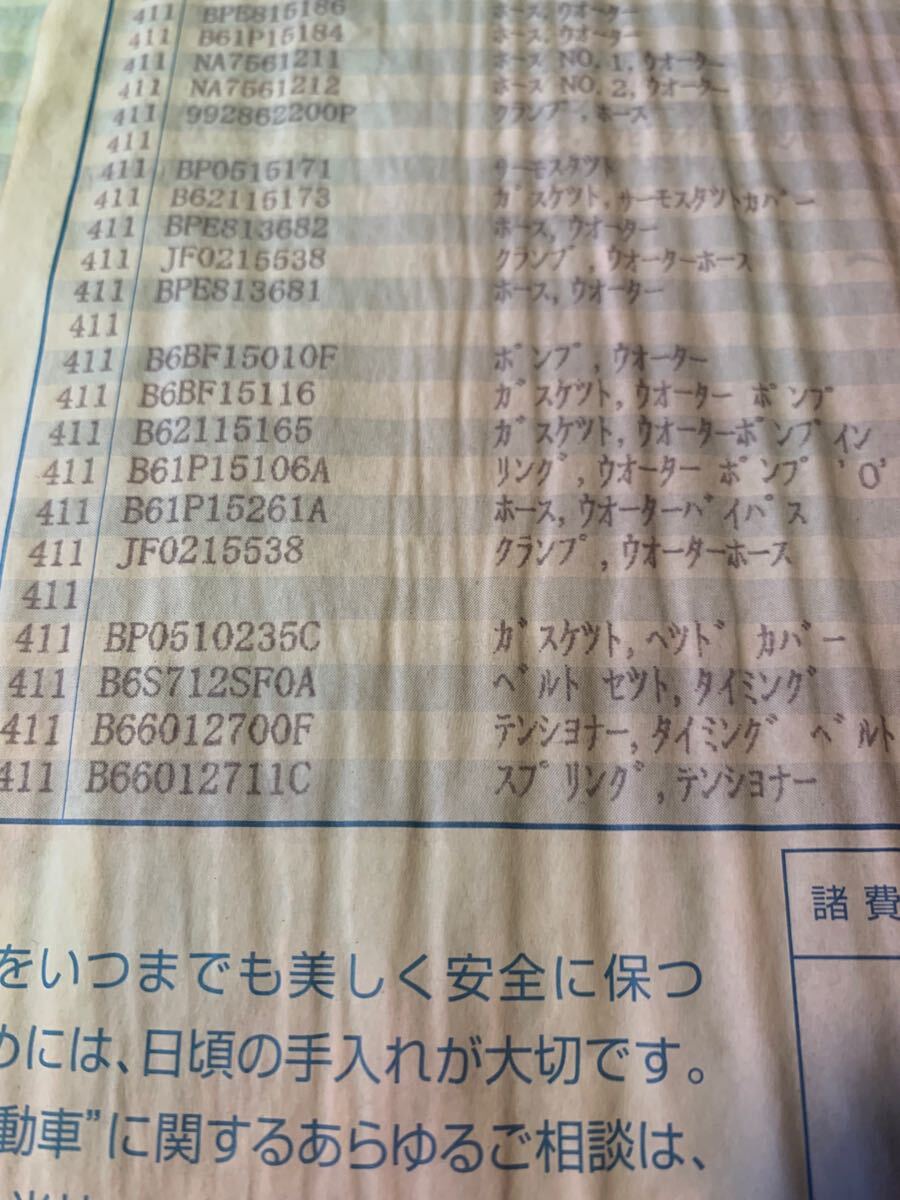 411 BPE815186 ホース,ウオーター
411 B61P15184 ホース,ウオーター
411 NA7561211 ホース NO.1,ウオーター
411 NA7561212 ホース NO.2,ウオーター
411 992862200P クランプ,ホース
411
411 BP0515171 サーモスタツト
411 B62115173 ガスケツト,サーモスタツトカバー
411 BPE813682 ホース,ウオーター
411 JF0215538 クランプ,ウオーターホース
411 BPE813681 ホース,ウオーター
411
411 B6BF15010F ポンプ,ウオーター
411 B6BF15116 ガスケツト,ウオーター ポンプ
411 B62115165 ガスケツト,ウオーターポンプイン
411 B61P15106A リング,ウオーター ポンプ 'O'
411 B61P15261A ホース,ウオーターバイパス
411 JF0215538 クランプ,ウオーターホース
411
411 BP0510235C ガスケツト,ヘツド カバー
411 B6S712SF0A ベルト セツト,タイミング
411 B66012700F テンシヨナー,タイミング ベルト
411 B66012711C スプリング,テンショナー
諸費
をいつまでも美しく安全に保つ
めには、日頃の手入れが大切です。
動車"に関するあらゆるご相談は、